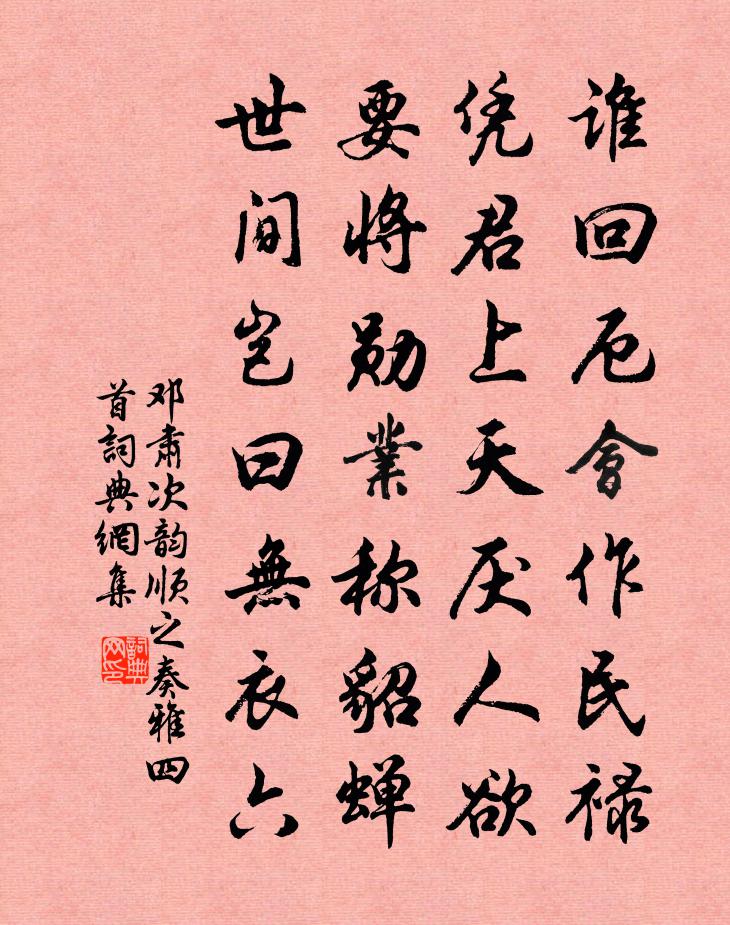 谁回厄會作民禄
凭君上天厌人欲
要将勋業称貂蝉
世间岂曰無衣六
邓肃次韵順之奏雅四
首詞典網集
詞典网印